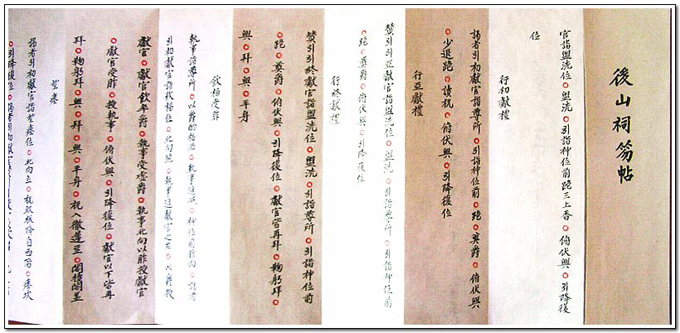 後山祠笏帖
官詣盥洗位○盥洗○引詣神位前跪三上香○俯伏興○引降復
位
行初獻禮
謁者引初獻官詣尊所○引詣神位前○跪○奠爵○俯伏興
○少退跪○讀祝○俯伏興○引降復位
行亞獻禮
贊引引亞獻官詣盥洗位○盥洗○引詣尊所○引詣神位前
○跪○奠爵○俯伏興○引降復位
行終獻禮
贊引引終獻官詣盥洗位○盥洗○引詣尊所○引詣神位前
○跪○奠爵○俯伏興○引降復位○獻官皆再拜○鞠躬拜○
興○拜○興○平身
飮福受胙
執事詣尊所○以爵酌福酒○執事進減○神位前胙肉○謁者
引初獻官詣飮福位○北向跪○執事進獻官之左○以爵授
獻官○獻官飮卒爵○執事受虛爵○執事北向以胙授獻官
○獻官受胙○授執事○俯伏興○引降復位○獻官以下皆再
拜○鞠躬拜○興○拜○興○平身○祝入徹籩豆○闔櫝闔蓋
望瘞
謁者引初獻官詣望瘞位○北向立○祝取祝板降自西階○瘞坎
○引降復位○謁者引初獻官